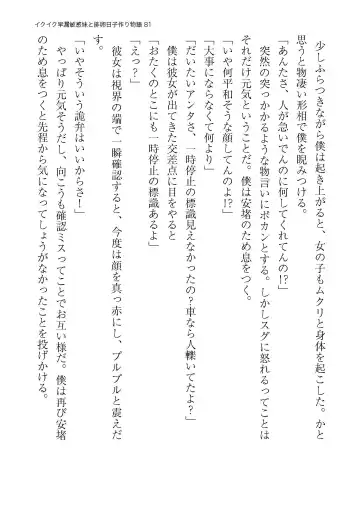 イクイク早漏敏感妹と排卵日子作り物語 81
少しふらつきながら僕は起き上がると、女の子もムクリと身体を起こした。かと
思うと物凄い形相で僕を睨みつける。
「あんたさ、人が急いでんのに何してくれてんの!?」
突然の突っかかるような物言いにポカンとする。しかしスグに怒れるってことは
それだけ元気ということだ。僕は安堵のため息をつく。
「いや何平和そうな顔してんのよ!?」
「大事にならなくて何より」
「だいたいアンタさ、一時停止の標識見えなかったの?車なら人轢いてたよ?」
僕は彼女が出てきた交差点に目をやると
「君のとこにも一時停止の標識あるよ」
「えっ?」
彼女は視界の端で一瞬確認すると、今度は顔を真っ赤にし、プルプルと震えだ
す。
「そういう詭弁はいいからさ!」
やっぱり元気そうだし、向こうも確認ミスってことでお互い様だ。僕は再び安堵
のため息をつくと先程から気になってしょうがなかったことを投げかける。